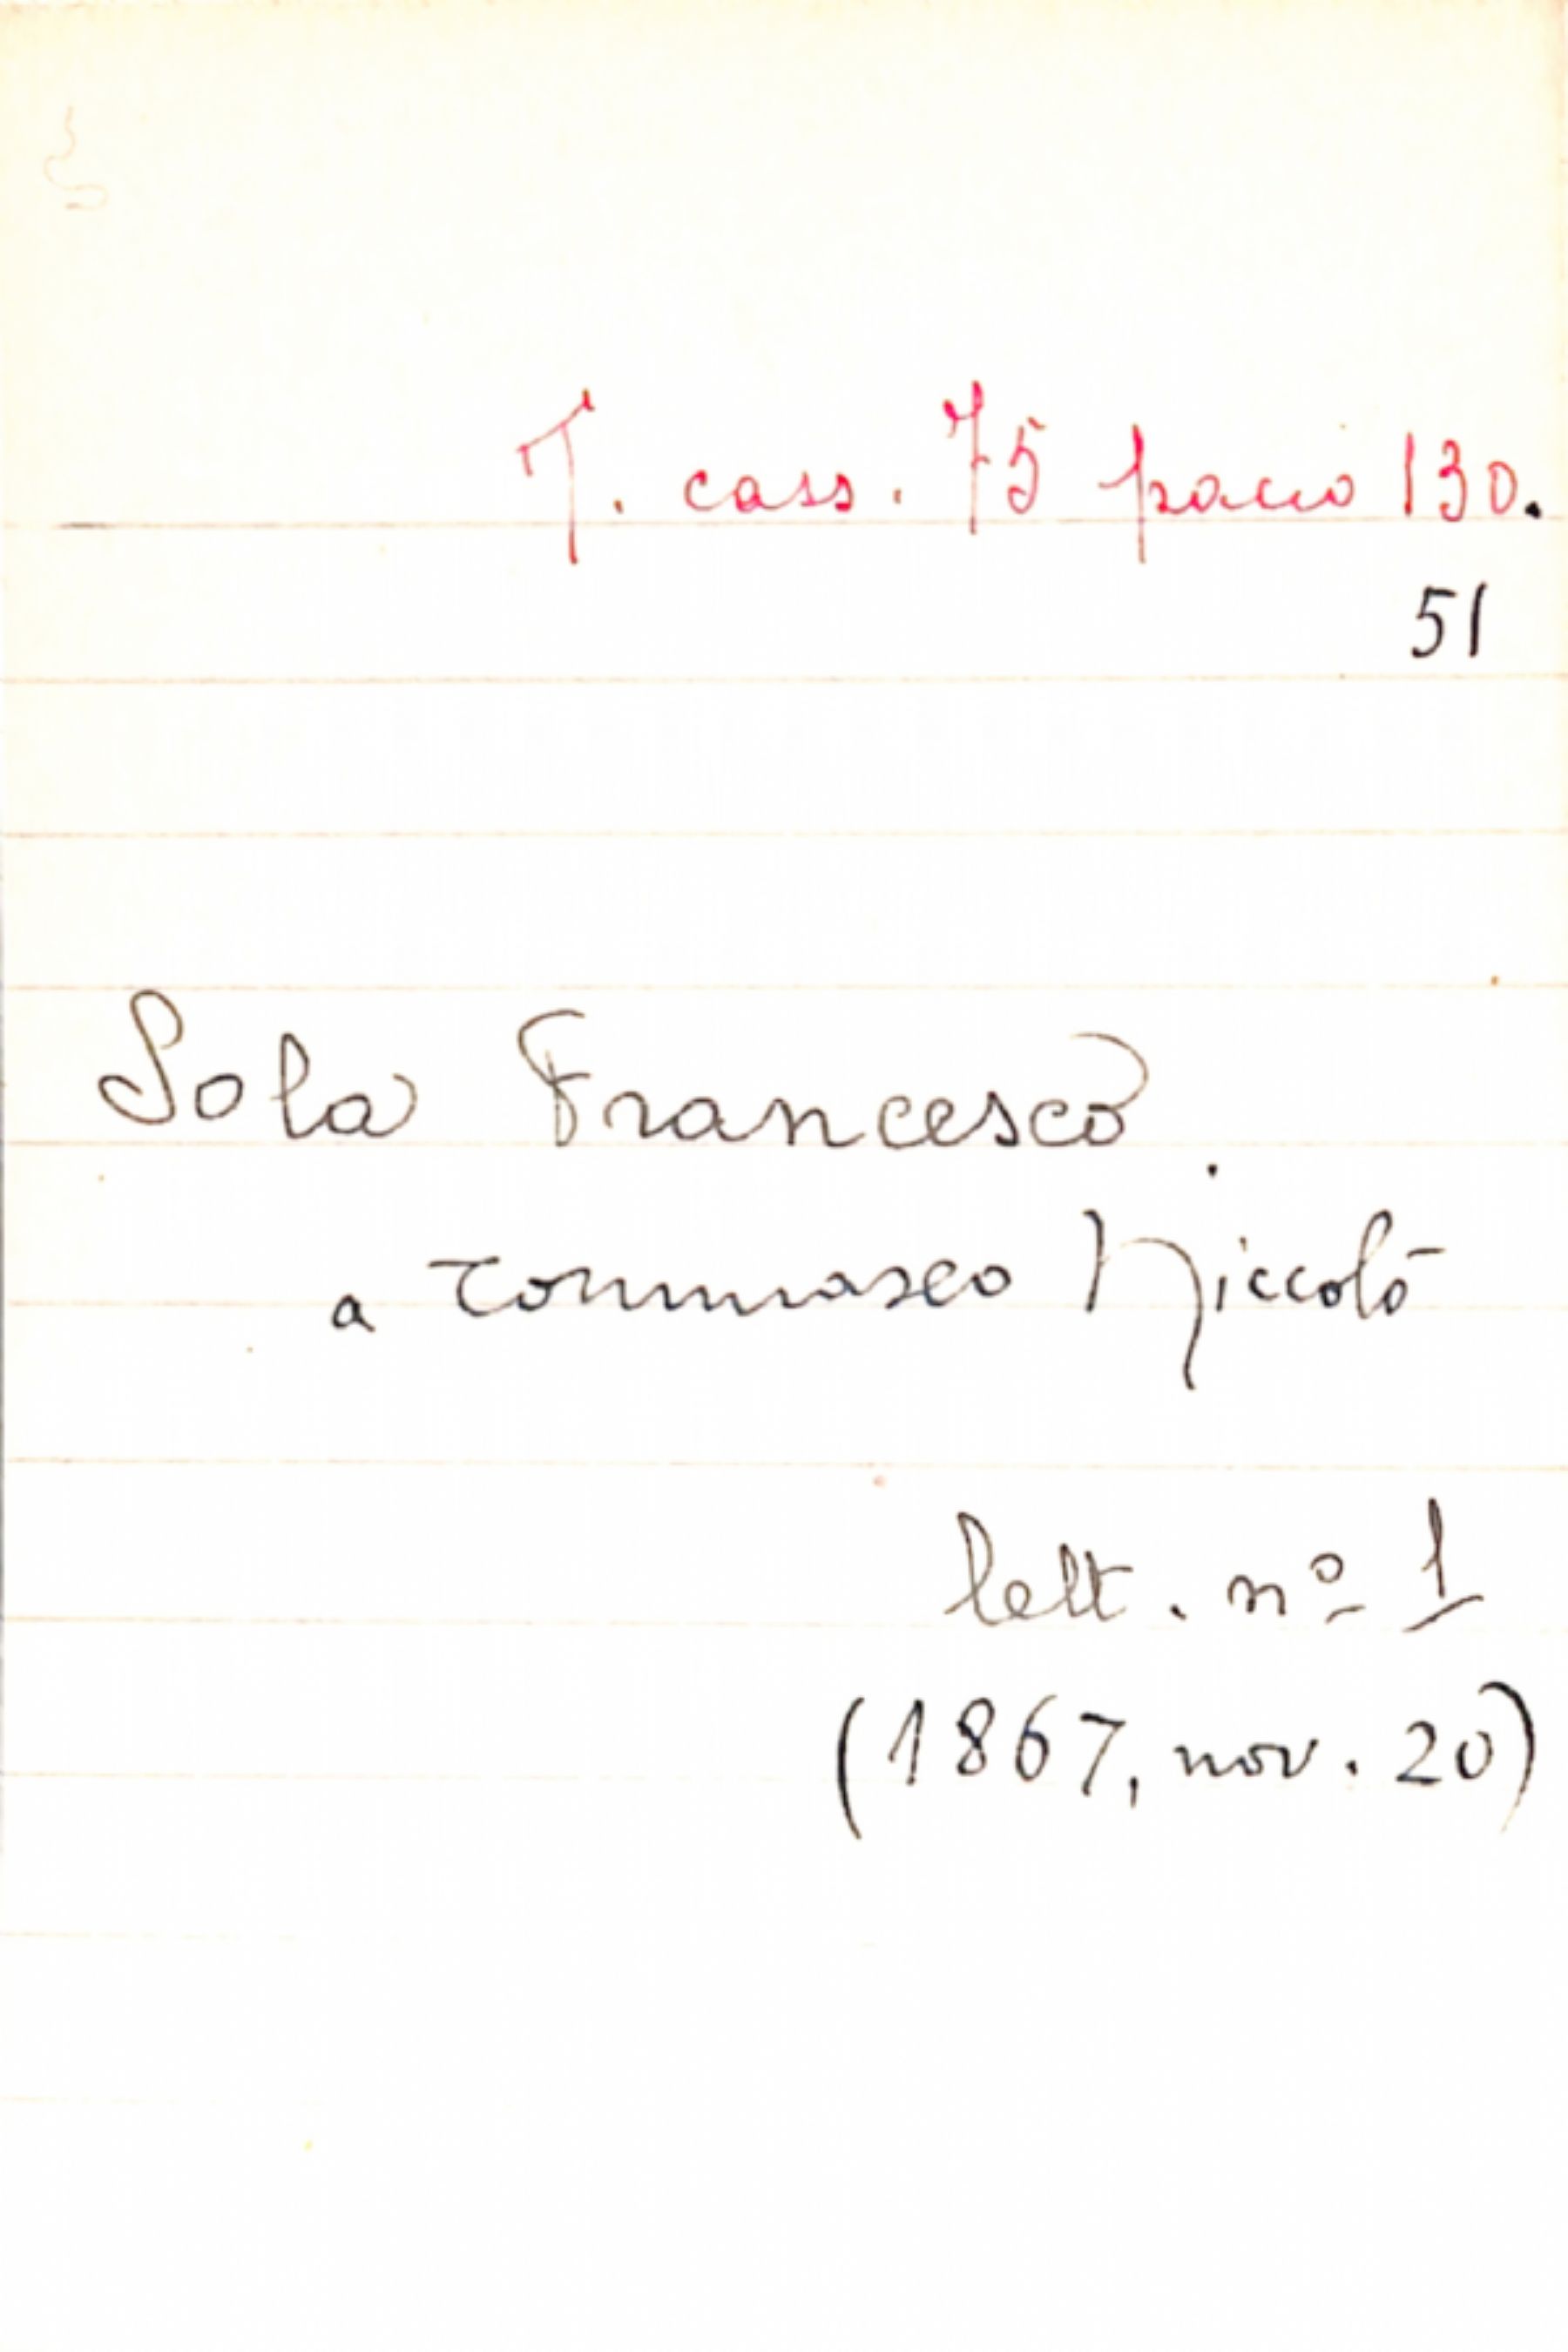 T. cass. 75 pacco 130.
51
Sola Francesco
a Tommaseo Niccolò
lett. nº 1
(1867, nov. 20)